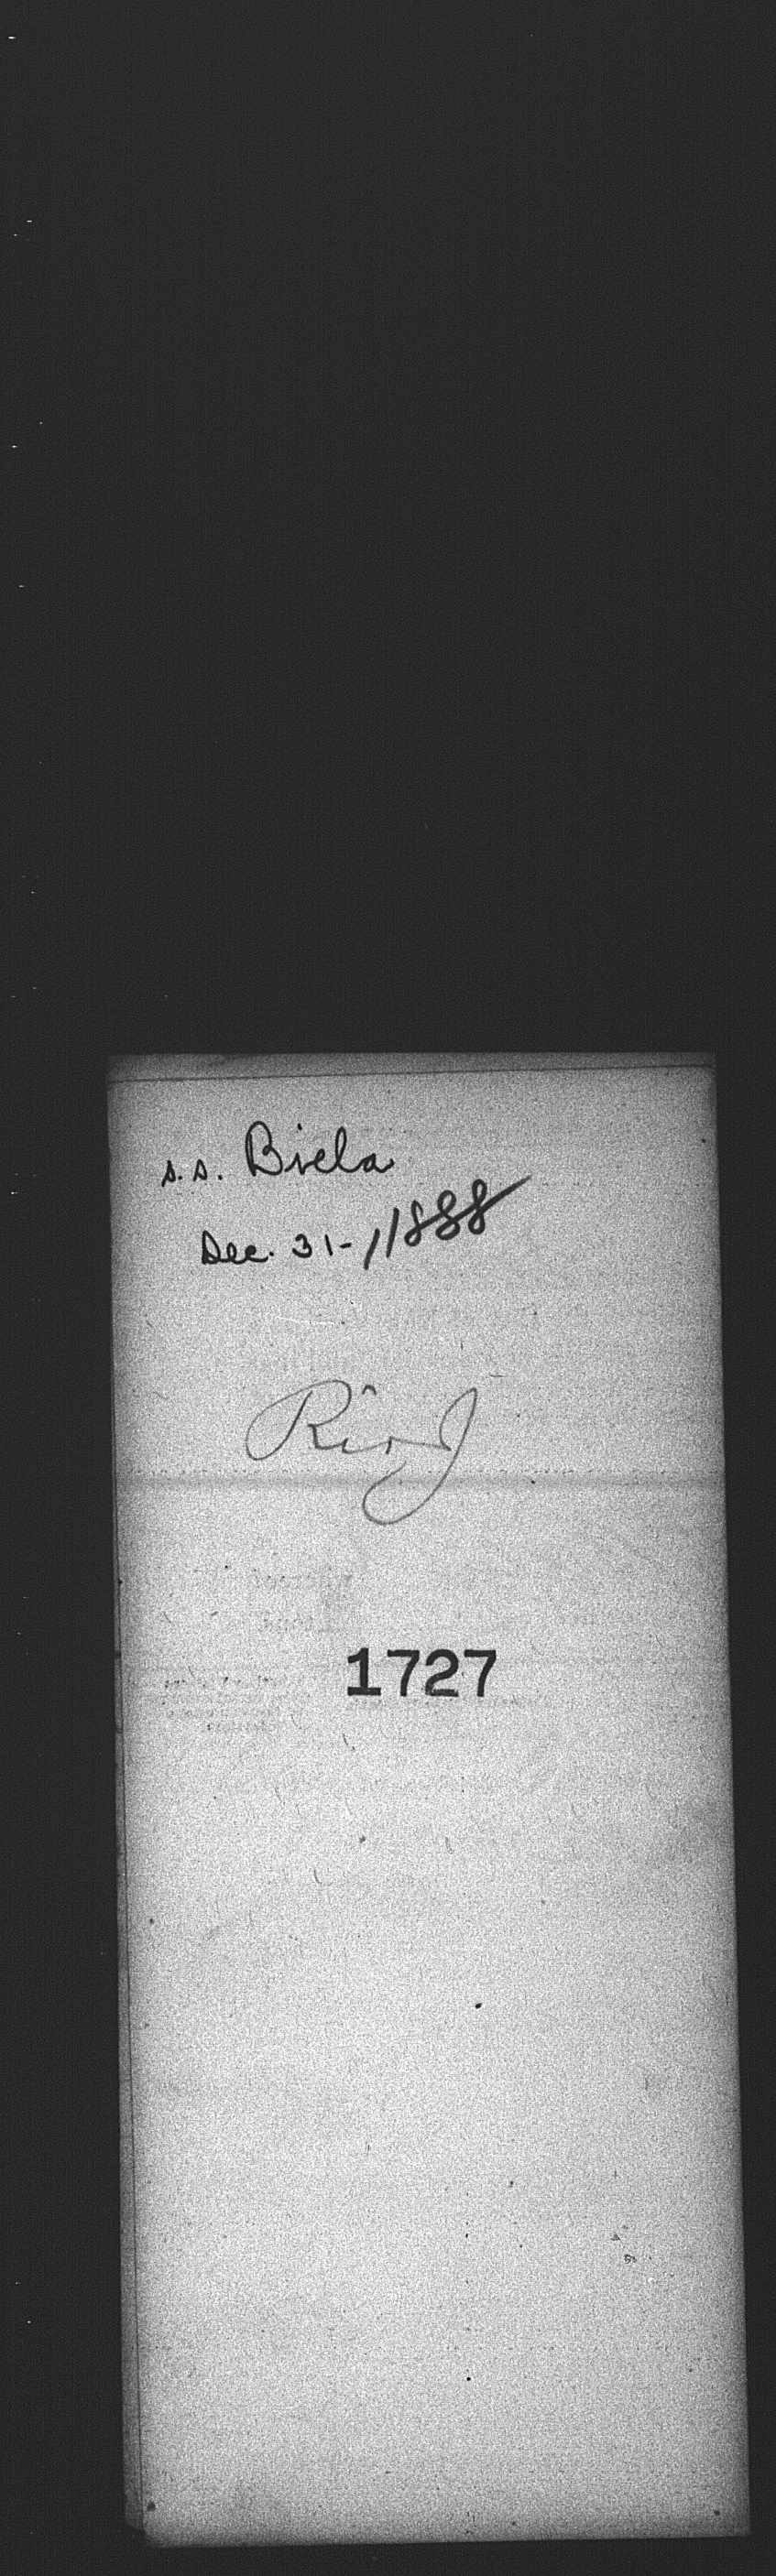 s.s. Biela
Dec. 31-/1888
Rio J
1727